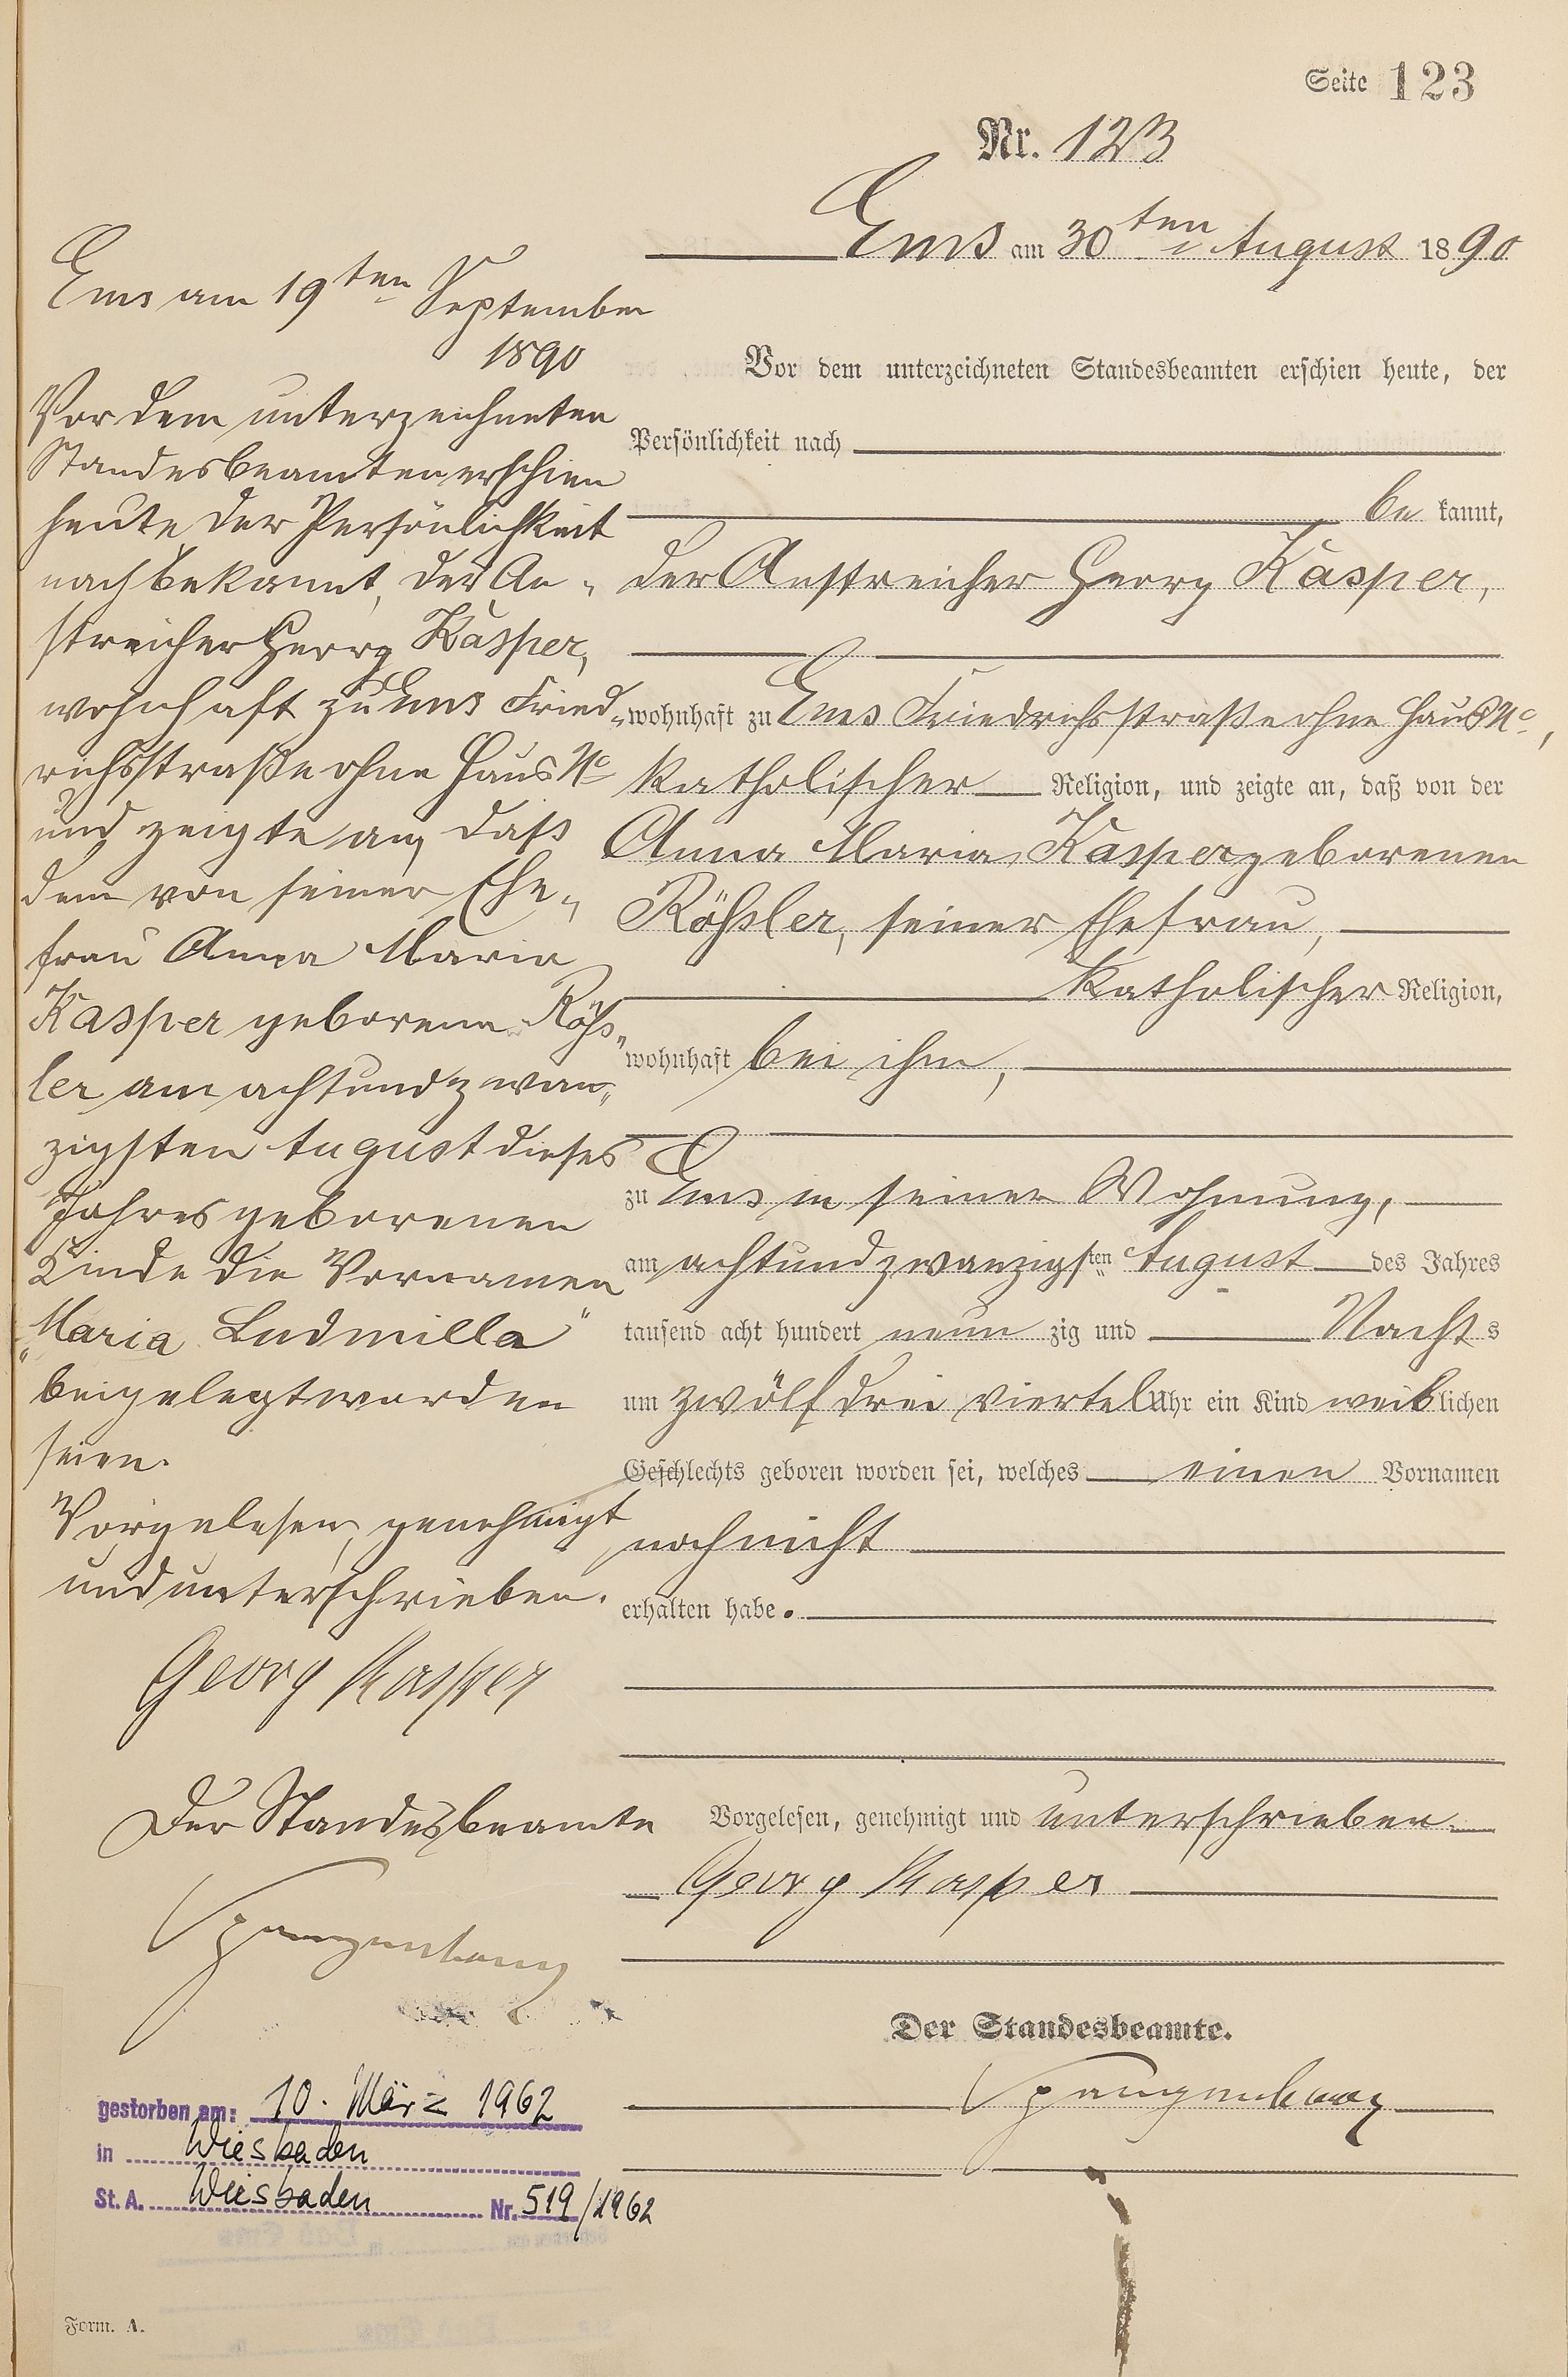 Seite 123
Nr. 123
Ems am 30ten August 1890
Vor dem unterzeichneten Standesbeamten erschien heute, der
Persönlichkeit nach
be kannt,
der Anstreicher Georg Kasper,
wohnhaft zu Ems Friedrichsstraße ohne Haus No,
katholischer Religion, und zeigte an, daß von der
Anna Maria Kasper geborenen
Rößler, seiner Ehefrau,
katholischer Religion,
wohnhaft bei ihm,
zu Ems in seiner Wohnung,
am achtundzwanzigsten August des Jahres
tausend acht hundert neun zig und Nachts
um zwölf drei viertel Uhr ein Kind weiblichen
Geschlechts geboren worden sei, welches einen Vornamen
noch nicht
erhalten habe.
Vorgelesen, genehmigt und unterschrieben.
Georg Kasper
Der Standesbeamte.
Spangenberg
Ems am 19ten September
1890
Vor dem unterzeichneten
Standesbeamten erschien
heute der Persönlichkeit
nach bekannt, der An-
streicher Georg Kasper,
wohnhaft zu Ems Fried-
richsstraße ohne Haus No
und zeigte an, daß
dem von seiner Ehe-
frau Anna Maria
Kasper geborenen Röß-
ler am achtundzwan-
zigsten August dieses
Jahres geborenen
Kinde die Vornamen
„Maria Ludmilla"
beigelegt worden
seien.
Vorgelesen, genehmigt
und unterschrieben.
Georg Kasper
Der Standesbeamte
Spangenberg
gestorben am: 10. März 1962
in Wiesbaden
St. A. Wiesbaden Nr. 519/1962
Form. A.